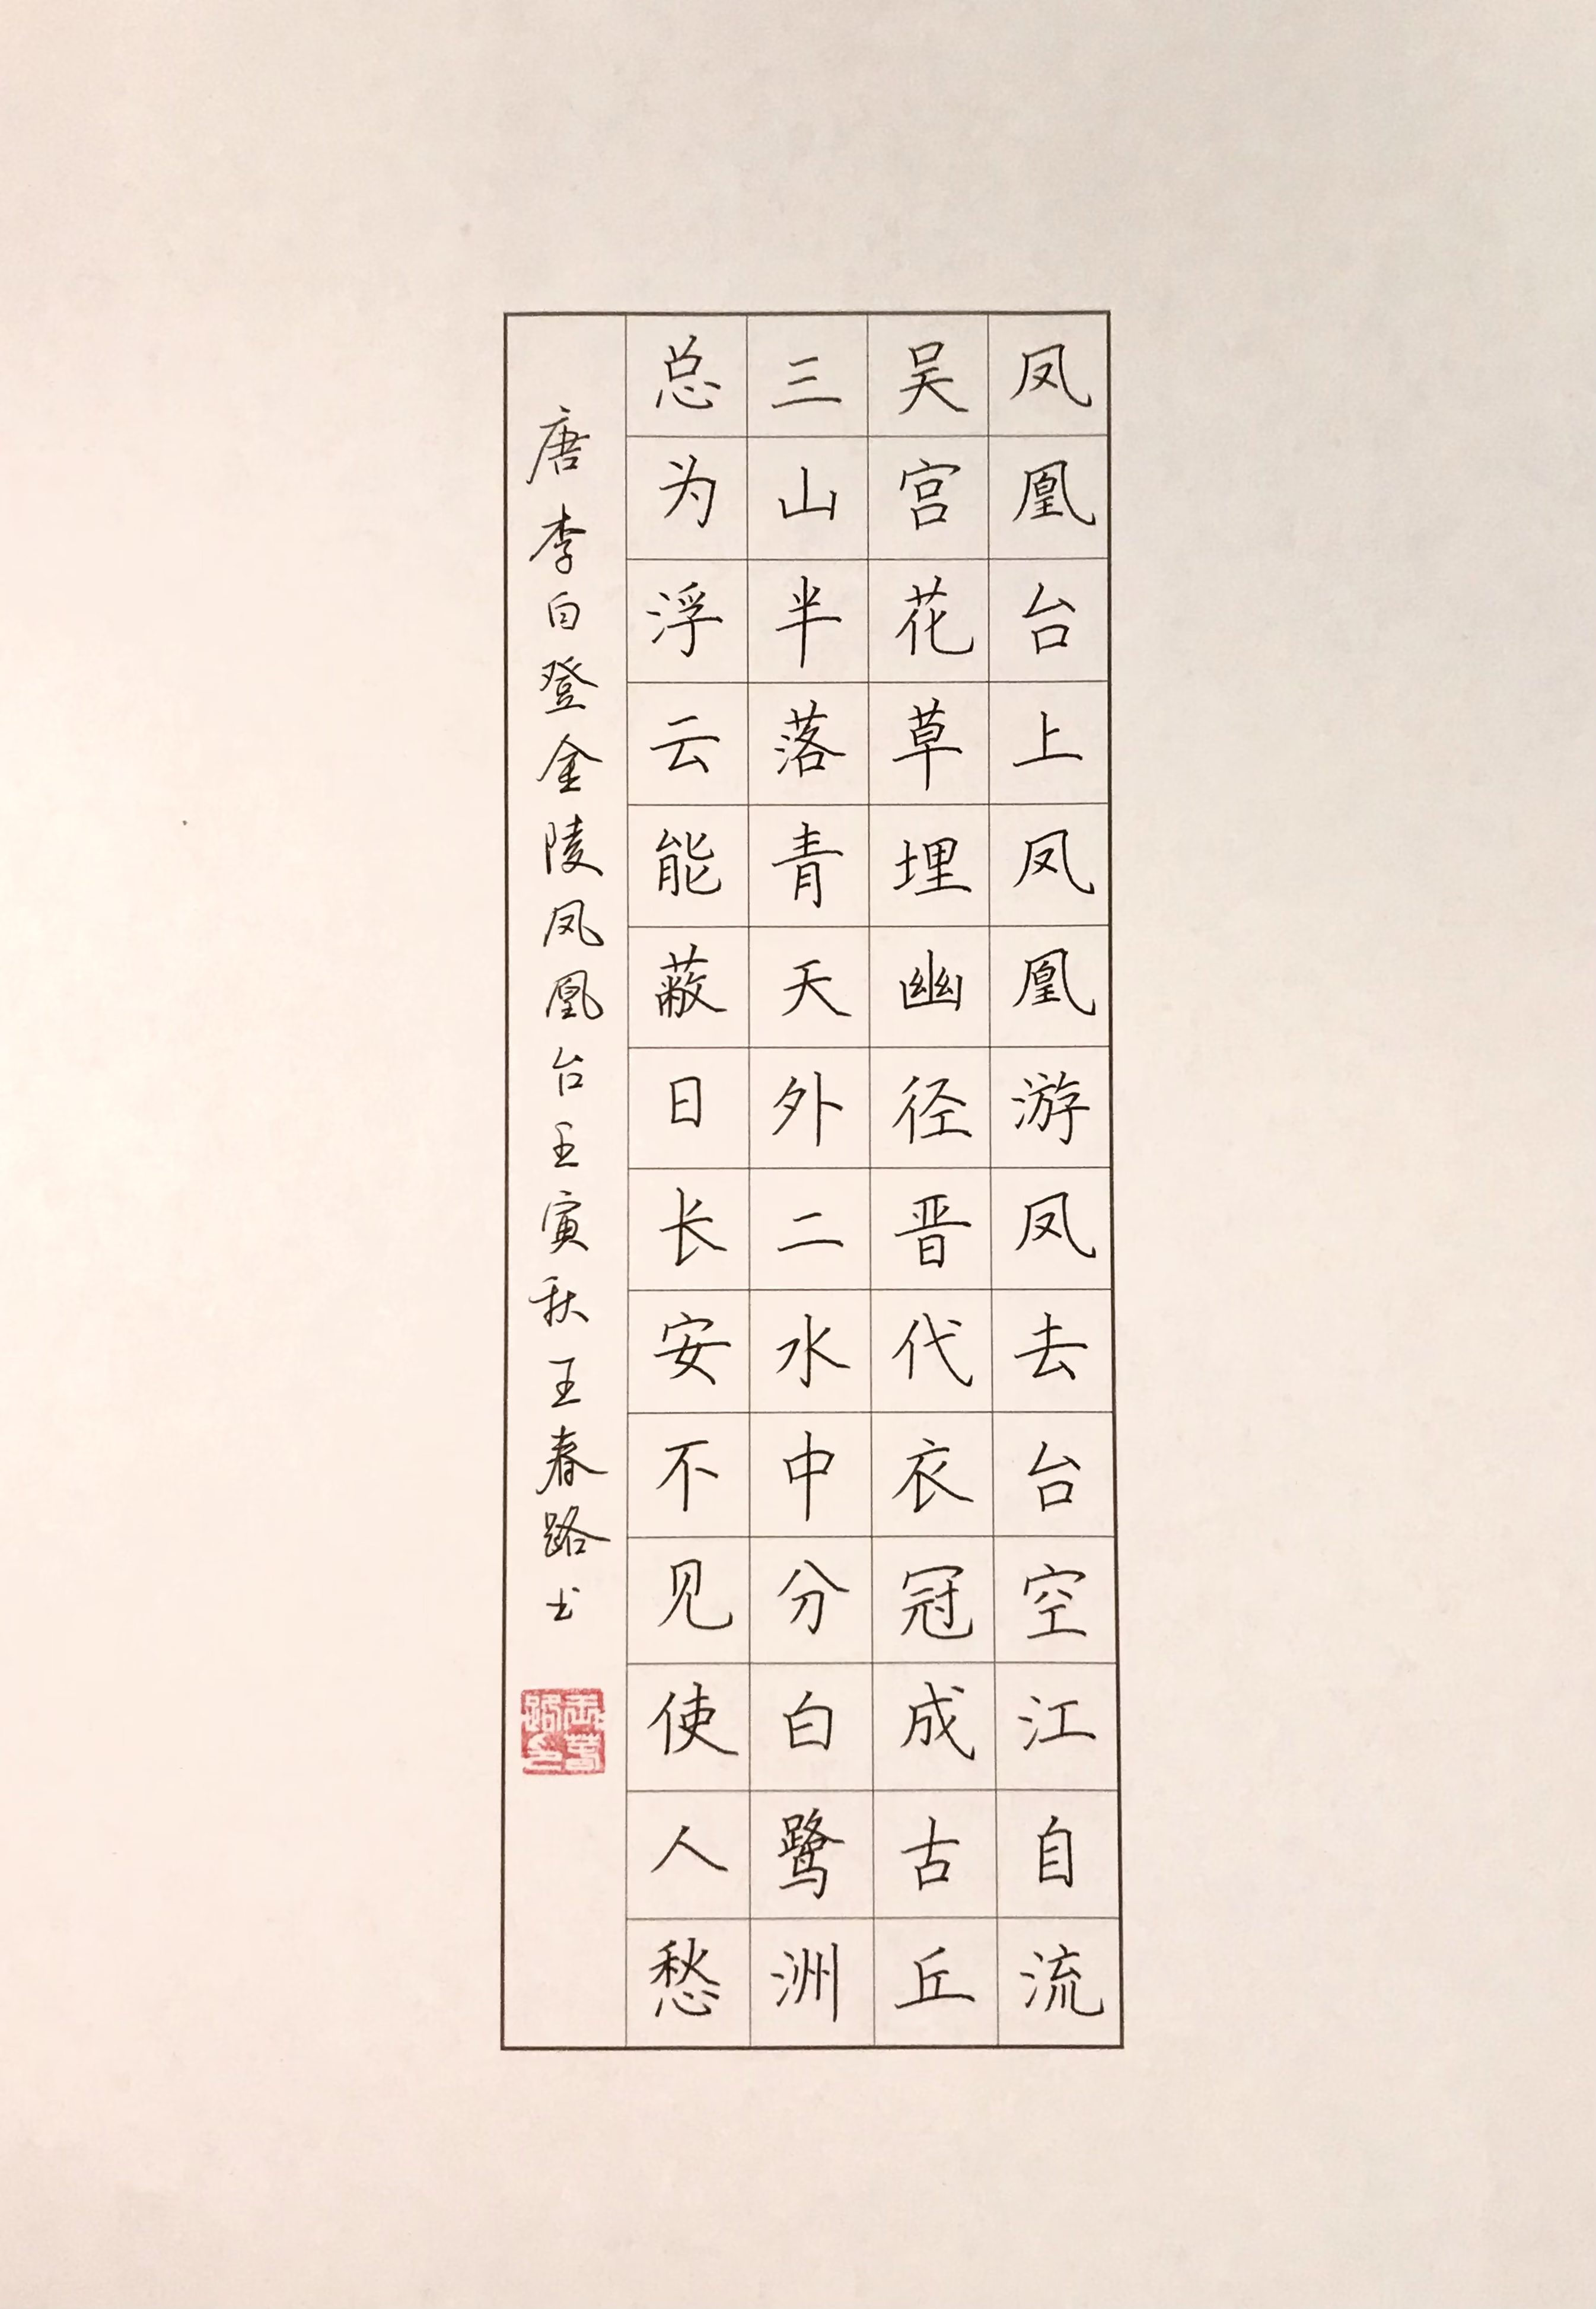 凤凰台上凤凰游凤去台空江自流
吴宫花草埋幽径晋代衣冠成古丘
三山半落青天外二水中分白鹭洲
总为浮云能蔽日长安不见使人愁
唐李白登金陵凤凰台壬寅秋王春路书
王春路印